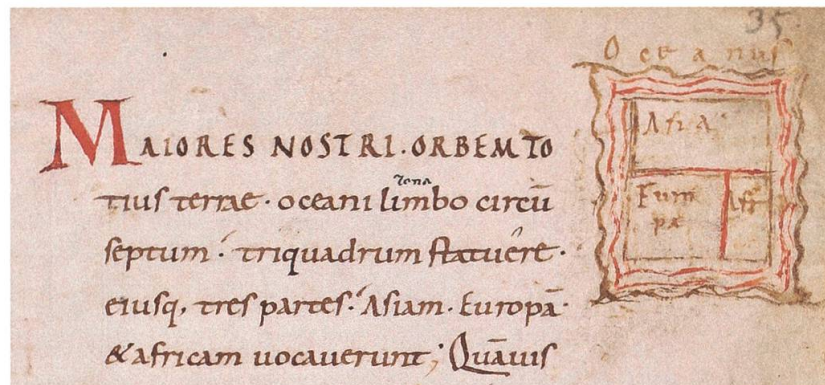 35
Oceanus
MAIORES NOSTRI. ORBEM TO
tius terrae · oceani limbo circū
zona
septum · triquadrum statuere ·
eiusq, tres partes · Asiam · Europā ·
& africam uocauerunt; Quāuis
Asia
Euro
pa
Afr